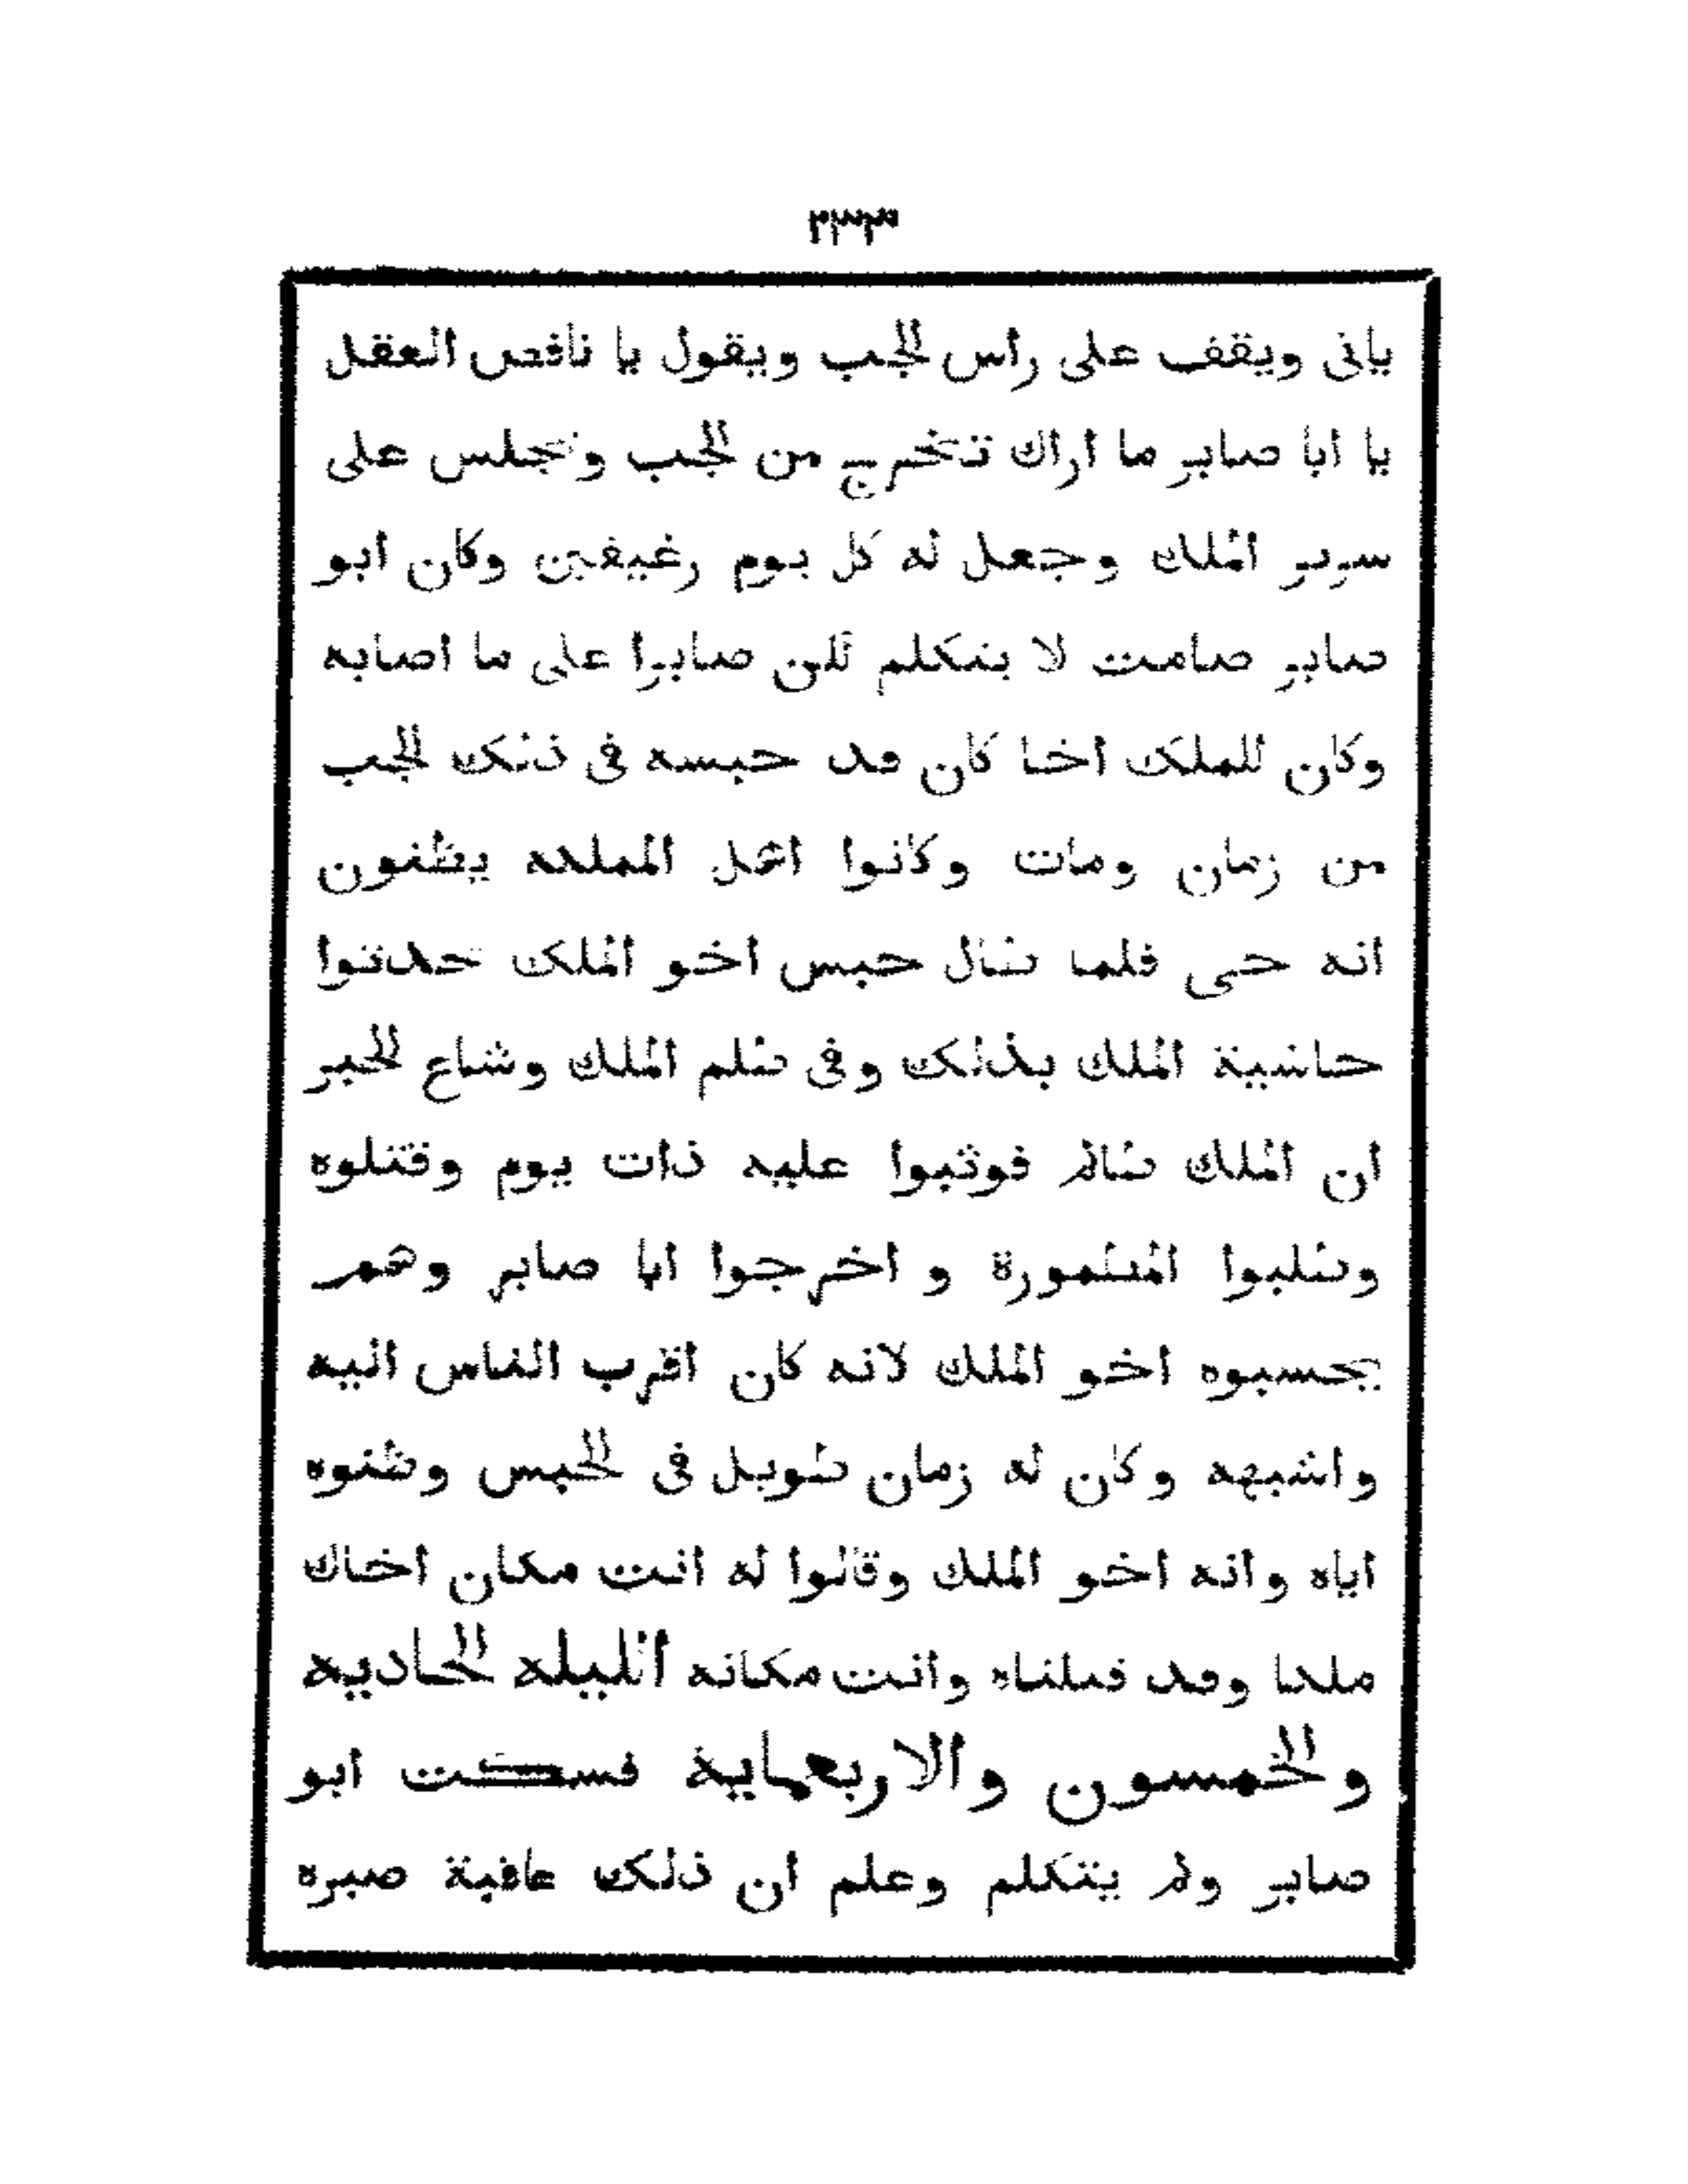 ٢٣٣
ياتى ويقف على راس الجب ويقول يا ناقص العقل
يا ابا صابر ما اراك تخرج من الجب وتجلس على
سرير الملك وجعل له كل يوم رغيفين وكان ابو
صابر صامت لا يتكلم لكن صابرا على ما اصابه
وكان للملك اخا كان قد حبسه فى ذلك الجب
من زمان ومات وكانوا اهل المملكه يظنون
انه حى فلما طال حبس اخو الملك تحدثوا
حاشية الملك بذلك وفى ظلم الملك وشاع الخبر
ان الملك ظالم فوثبوا عليه ذات يوم وقتلوه
وطلبوا المطمورة و اخرجوا ابا صابر وهم
يحسبوه اخو الملك لانه كان اقرب الناس اليه
واشبهه وكان له زمان طويل فى الحبس وظنوه
اياه وانه اخو الملك وقالوا له انت مكان اخاك
ملكا وقد قتلناه وانت مكانه الليله الحاديه
والخمسون والاربعماية فسكت ابو
صابر ولم يتكلم وعلم ان ذلك عاقبة صبره